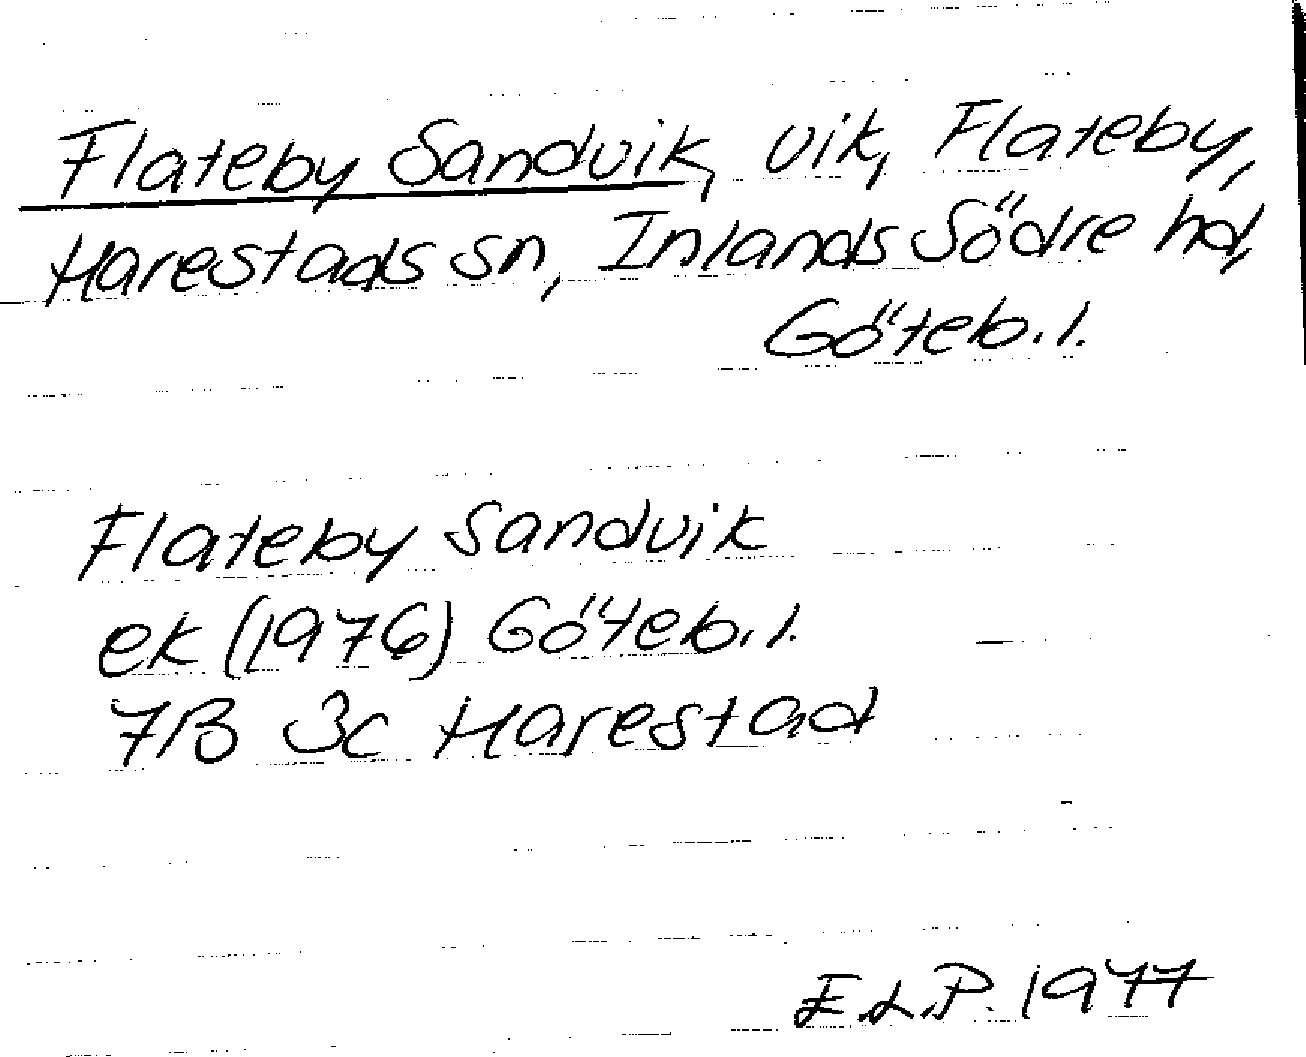 Flateby Sandvik, vik, Flateby,
Harestads sn, Inlands Södre hd,
Göteb. l.
Flateby Sandvik
ek (1976) Göteb. l.
7B 3c Harestad
E.L.P. 1977